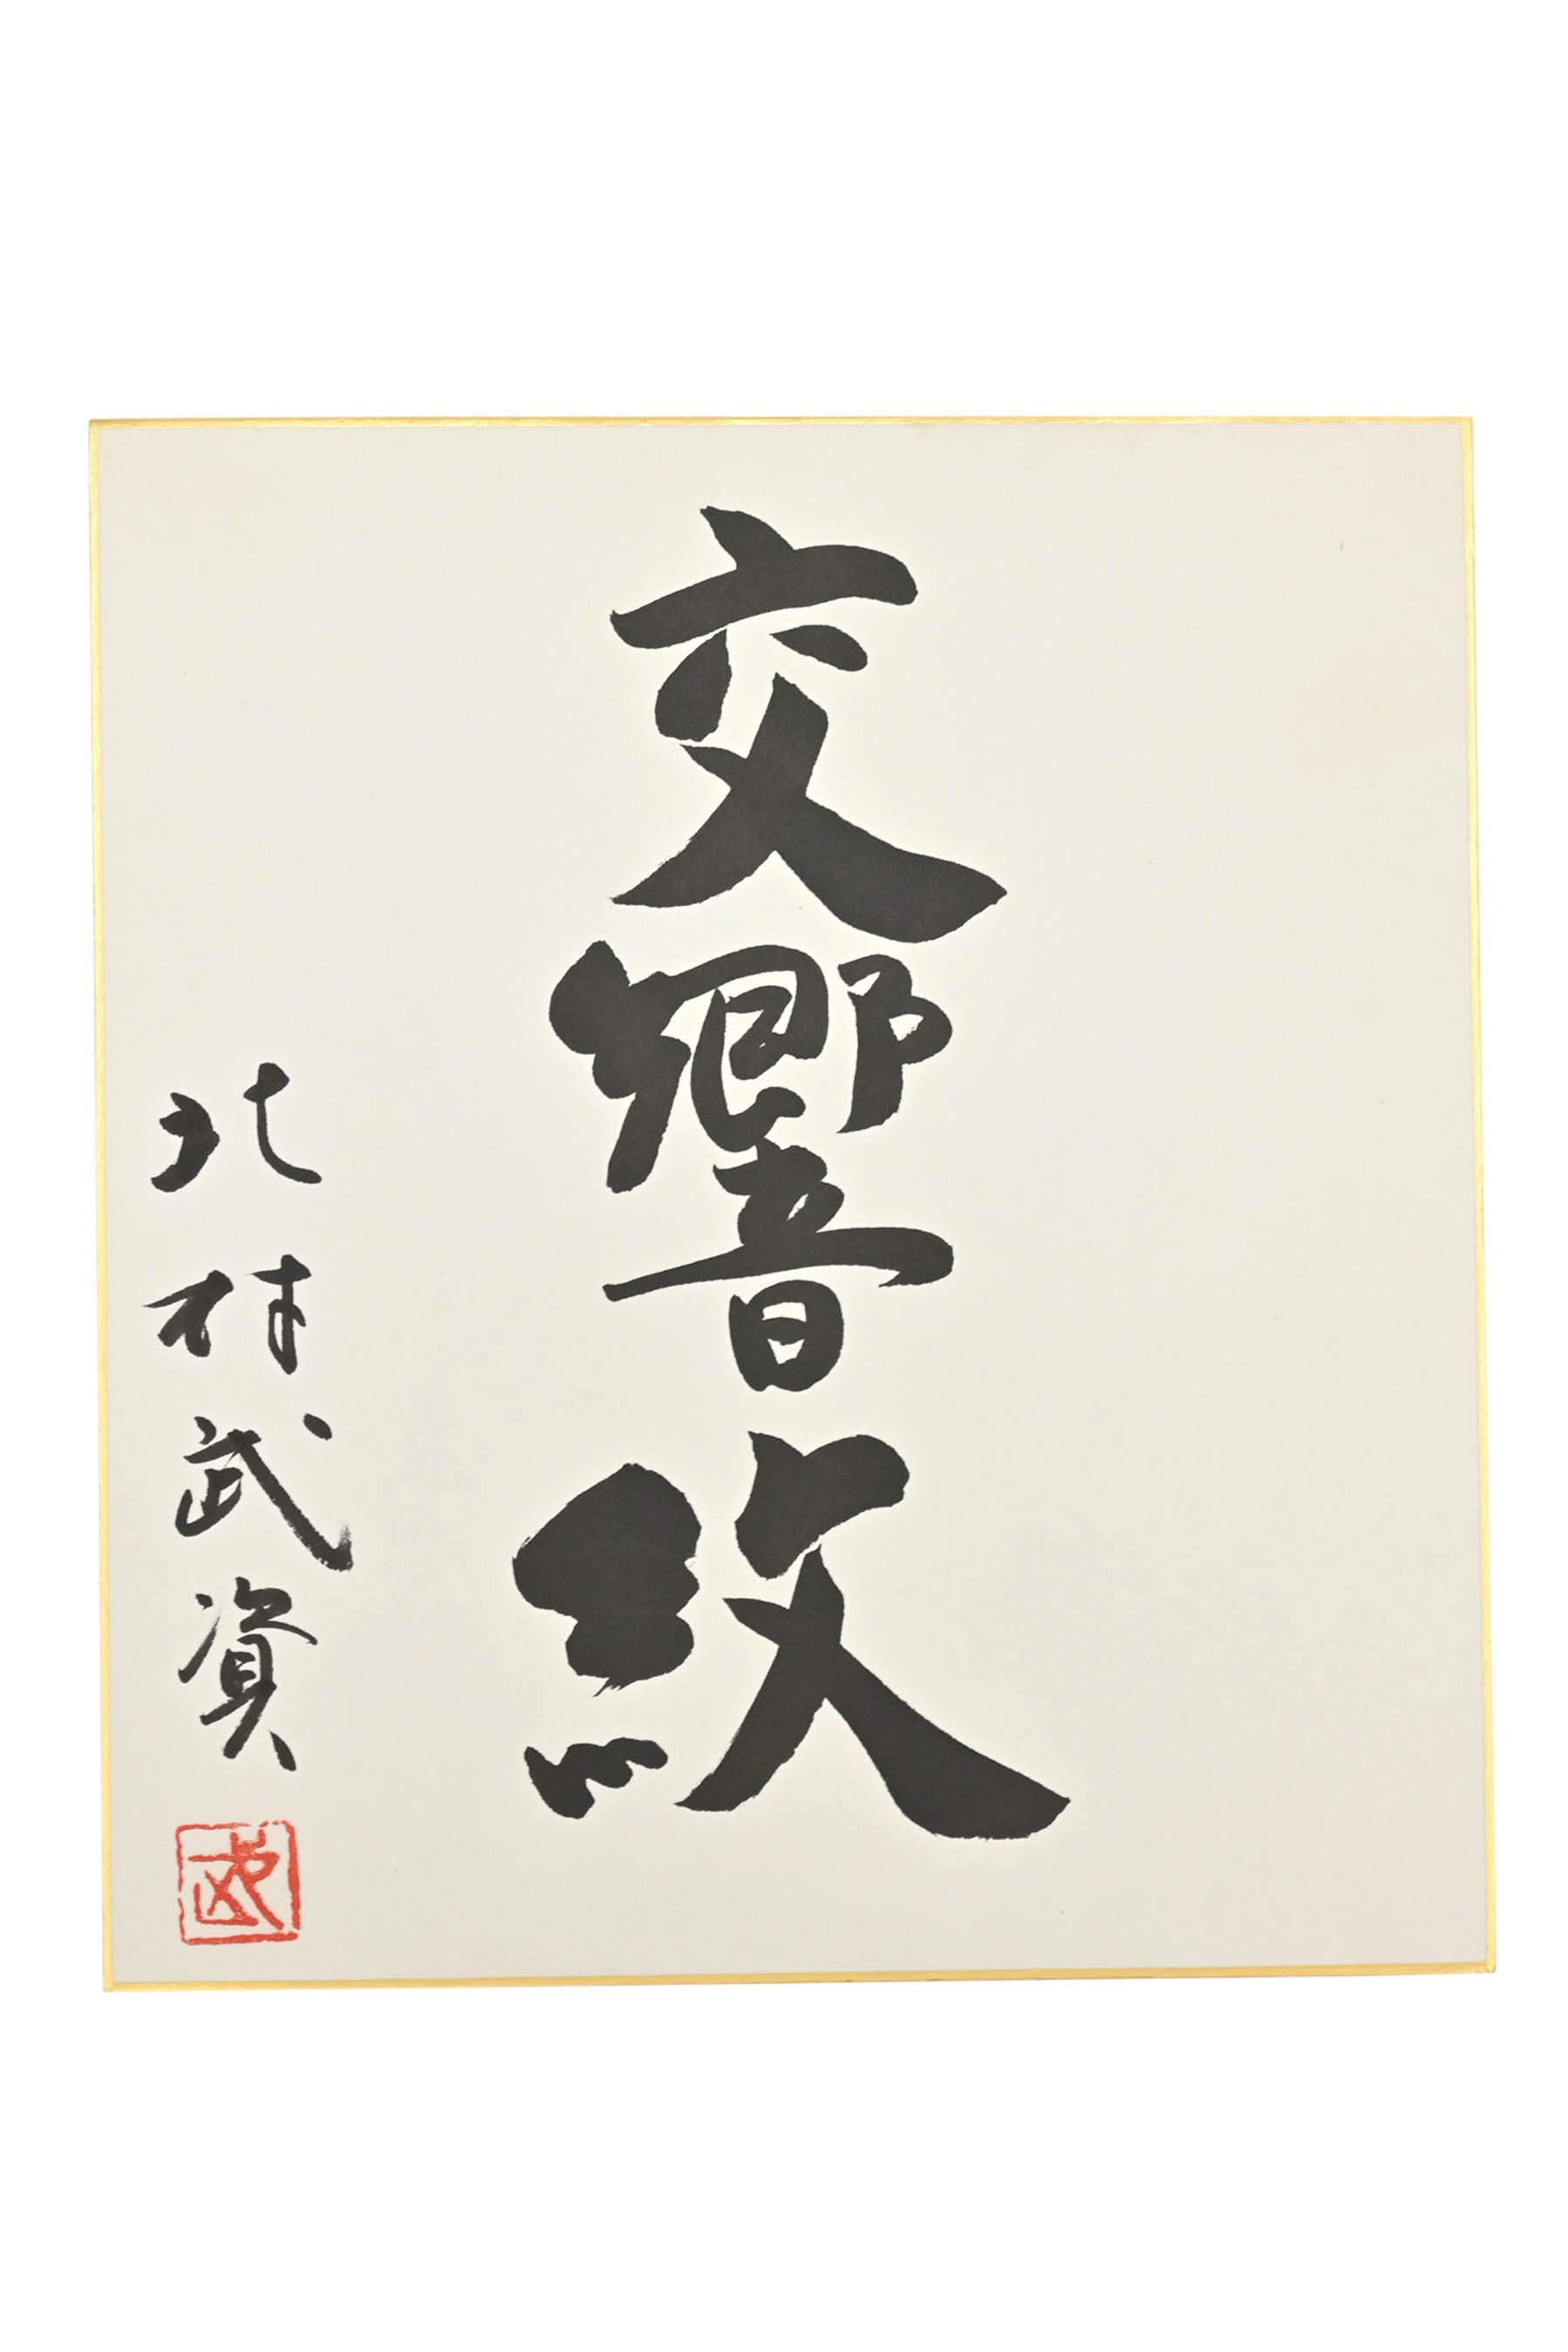 交響紋
北村武資
武